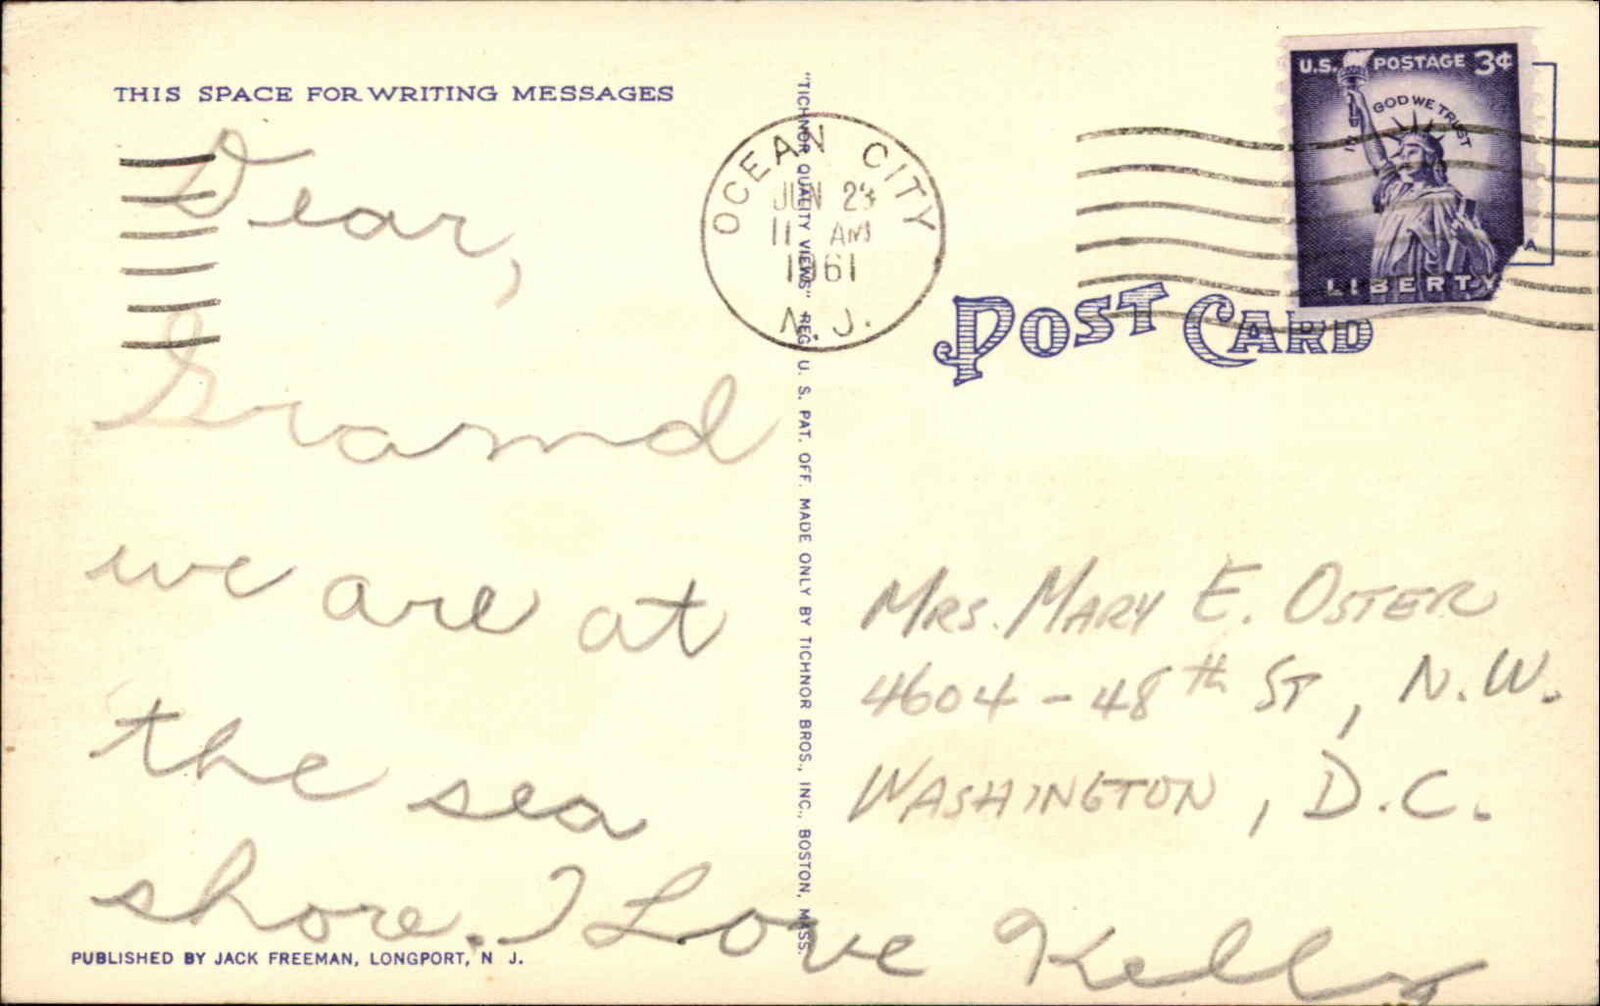 THIS SPACE FOR WRITING MESSAGES
Dear,
Grand
we are at
the sea
shore. Love Kelly
PUBLISHED BY JACK FREEMAN, LONGPORT, N J.
"TICHNOR QUALITY VIEWS" REG. U. S. PAT. OFF. MADE ONLY BY TICHNOR BROS., INC., BOSTON, MASS.
OCEAN CITY
JUN
11 AM
1961
N. J.
U.S. POSTAGE 3¢
IN GOD WE TRUST
LIBERTY
POST CARD
MRS. MARY E. OSTER
4604-48th ST, N.W.
WASHINGTON, D.C.